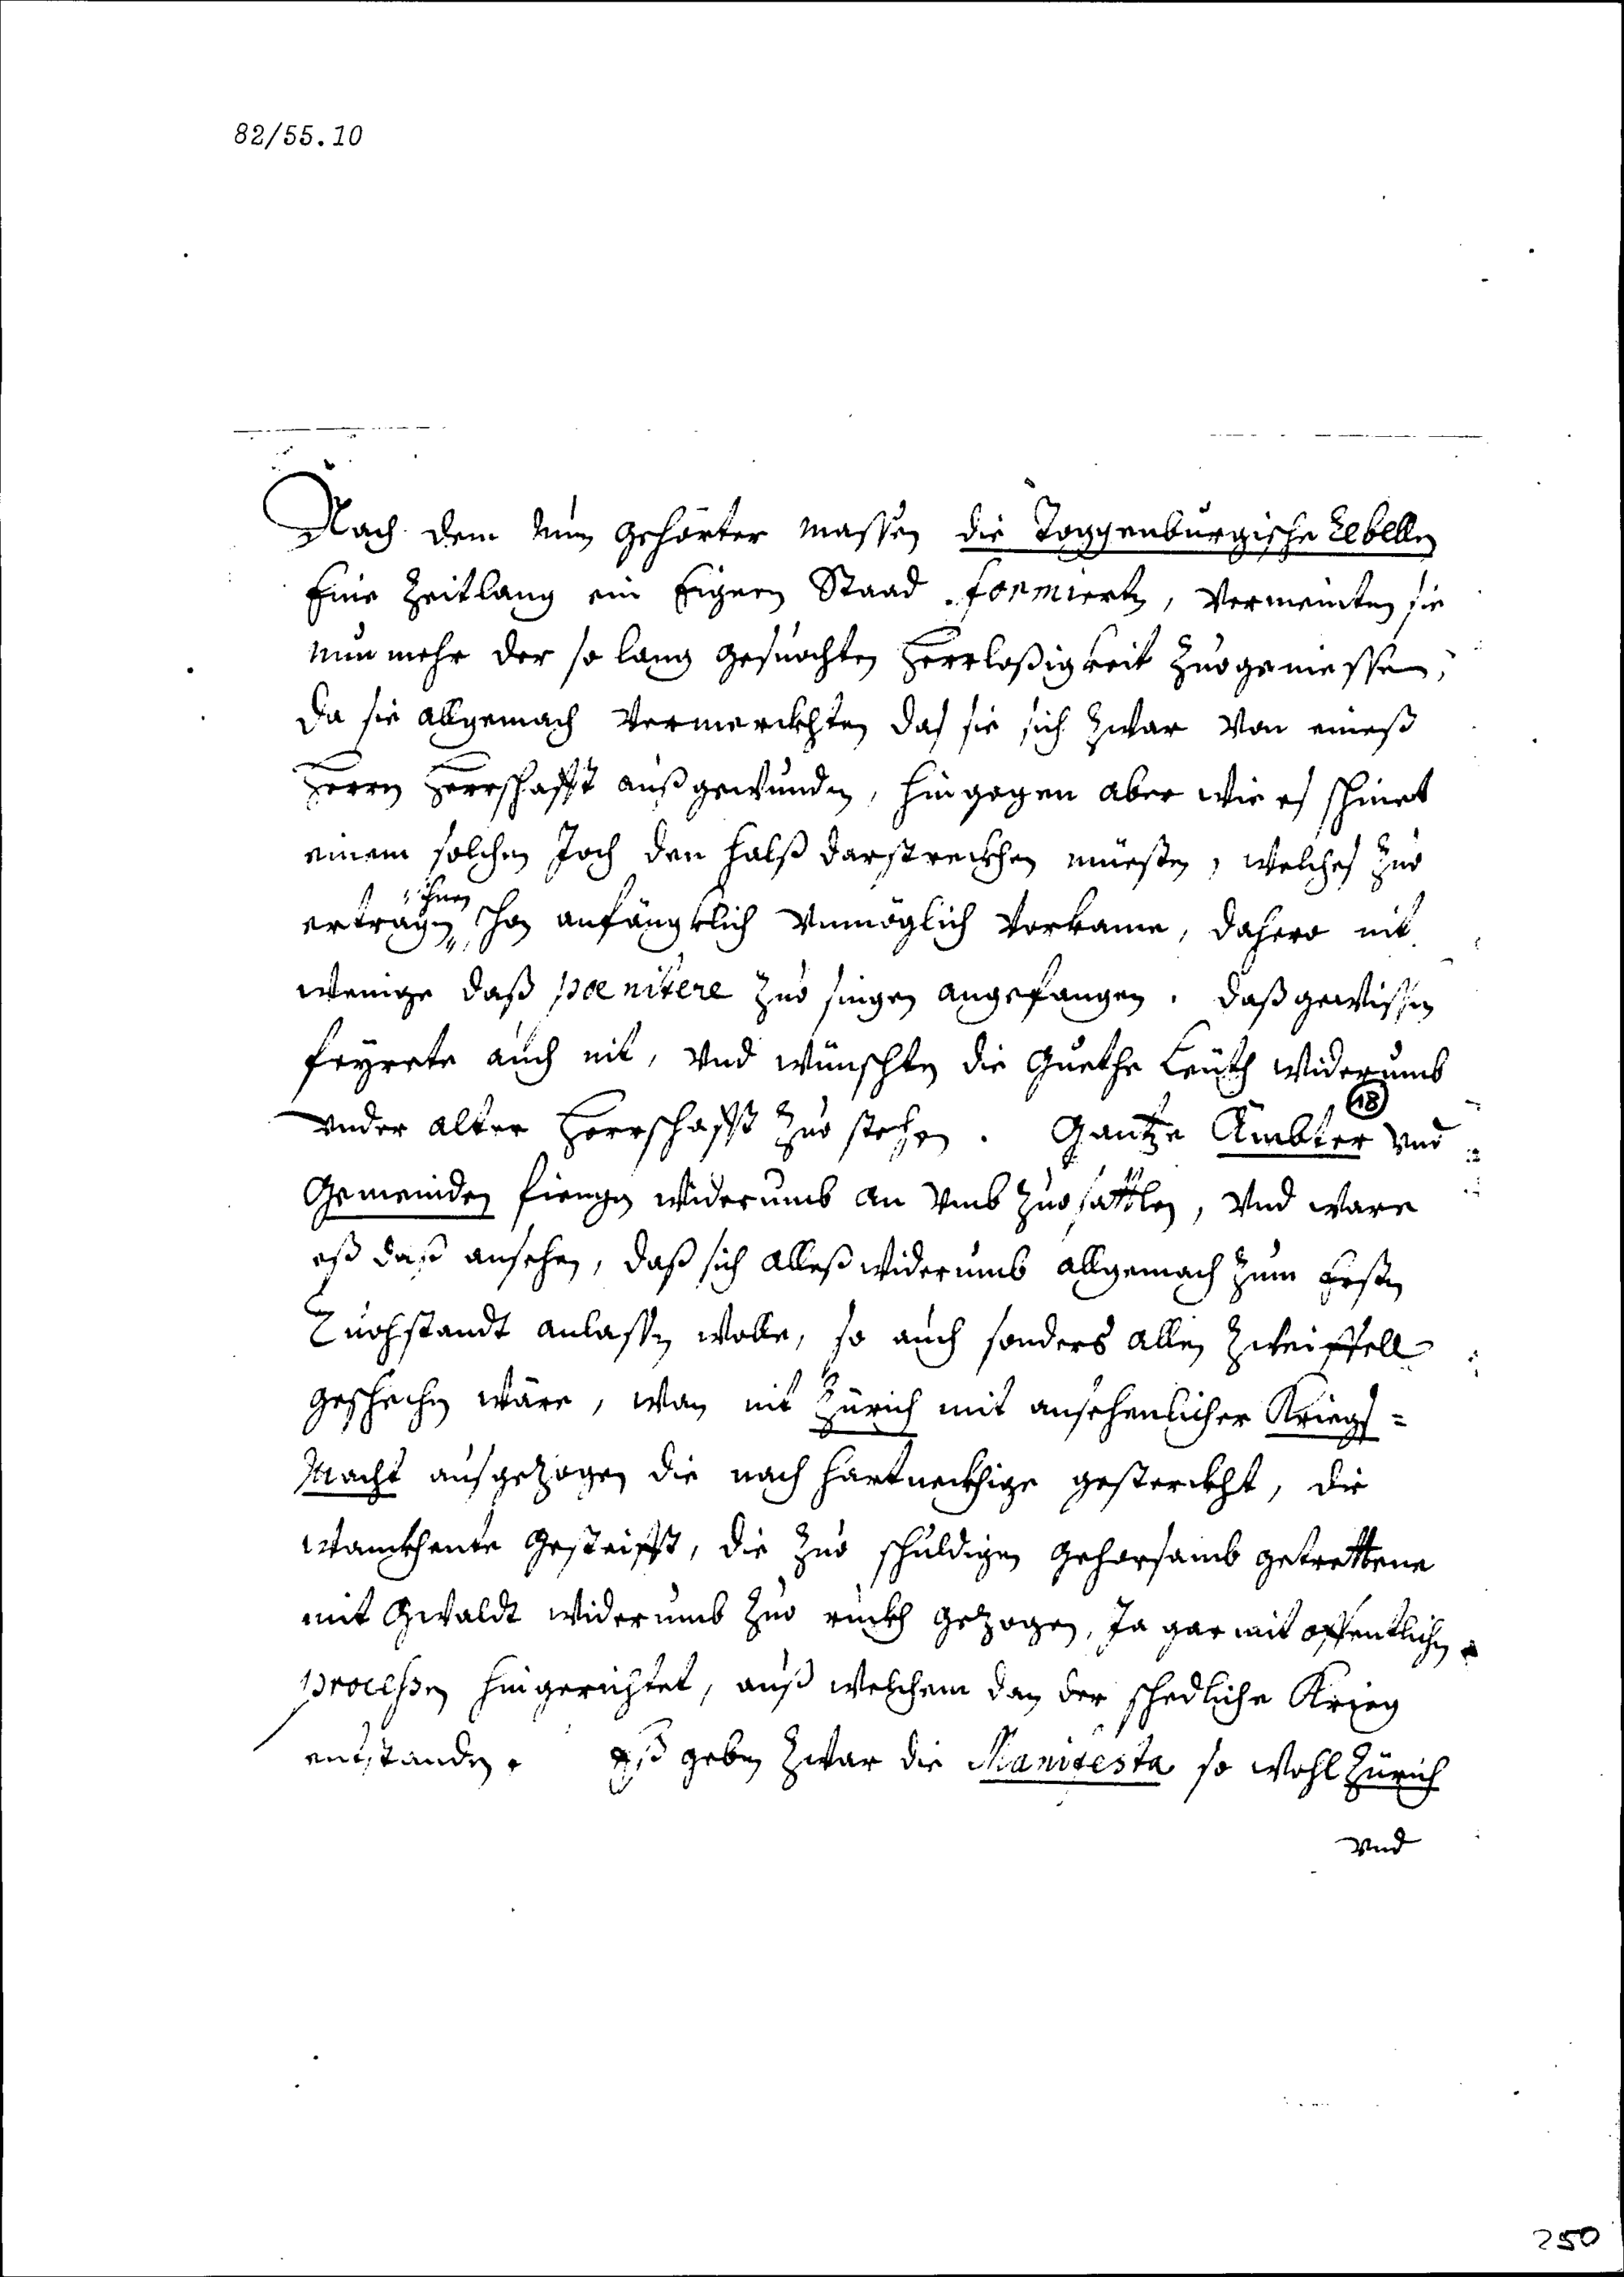 82/55.10
Nach dem nun gehörter massen die Toggenburgische Rebellen
Eine Zeitlang ein Eignen Staad formierten, vermeinten sie
nun mehr der so lang gesuochten Herrloßigkeit zuo geniessen,
da sie allgemach vermerckhten das sie sich zwar von eineß
Herrn Herrschafft außgewunden, hingegen aber wie es schinet
einem solchen Joch den halß darstreckhen müesten, welches zuo
ertragen ihnen schon anfängklich vnmöglich vorkame, dahero nit
wenige daß poenitere zuo singen angefangen. daß gewissen
feyrete auch nit, vnd wünschten die Guethe Leüth widerumb
vnder alter Herrschafft zuo stehen. Gantze Ämbter vnd
18
Gemeinden fiengen widerumb an vmb zuo sattlen, vnd ware
eß daß ansehen, daß sich alleß widerumb allgemach zum Ersten
Ruohstandt anlassen wolle, so auch sonders allen Zweiffell
geschechen wäre, wan nit Zürich mit ansehenlicher Kriegs=
Macht ausgezogen die nach hartneckhige gesterckht, die
wanckhente gesteifft, die zuo schuldigen gehorsamb getrettene
mit Gwaldt widerumb zuo ruckh gezogen, Ja gar mit offentlichen
processen hingerichtet, auß welchem dan der schedliche Krieg
entstanden. Eß geben zwar die Manifesta so wohl Zürich
vnd
250